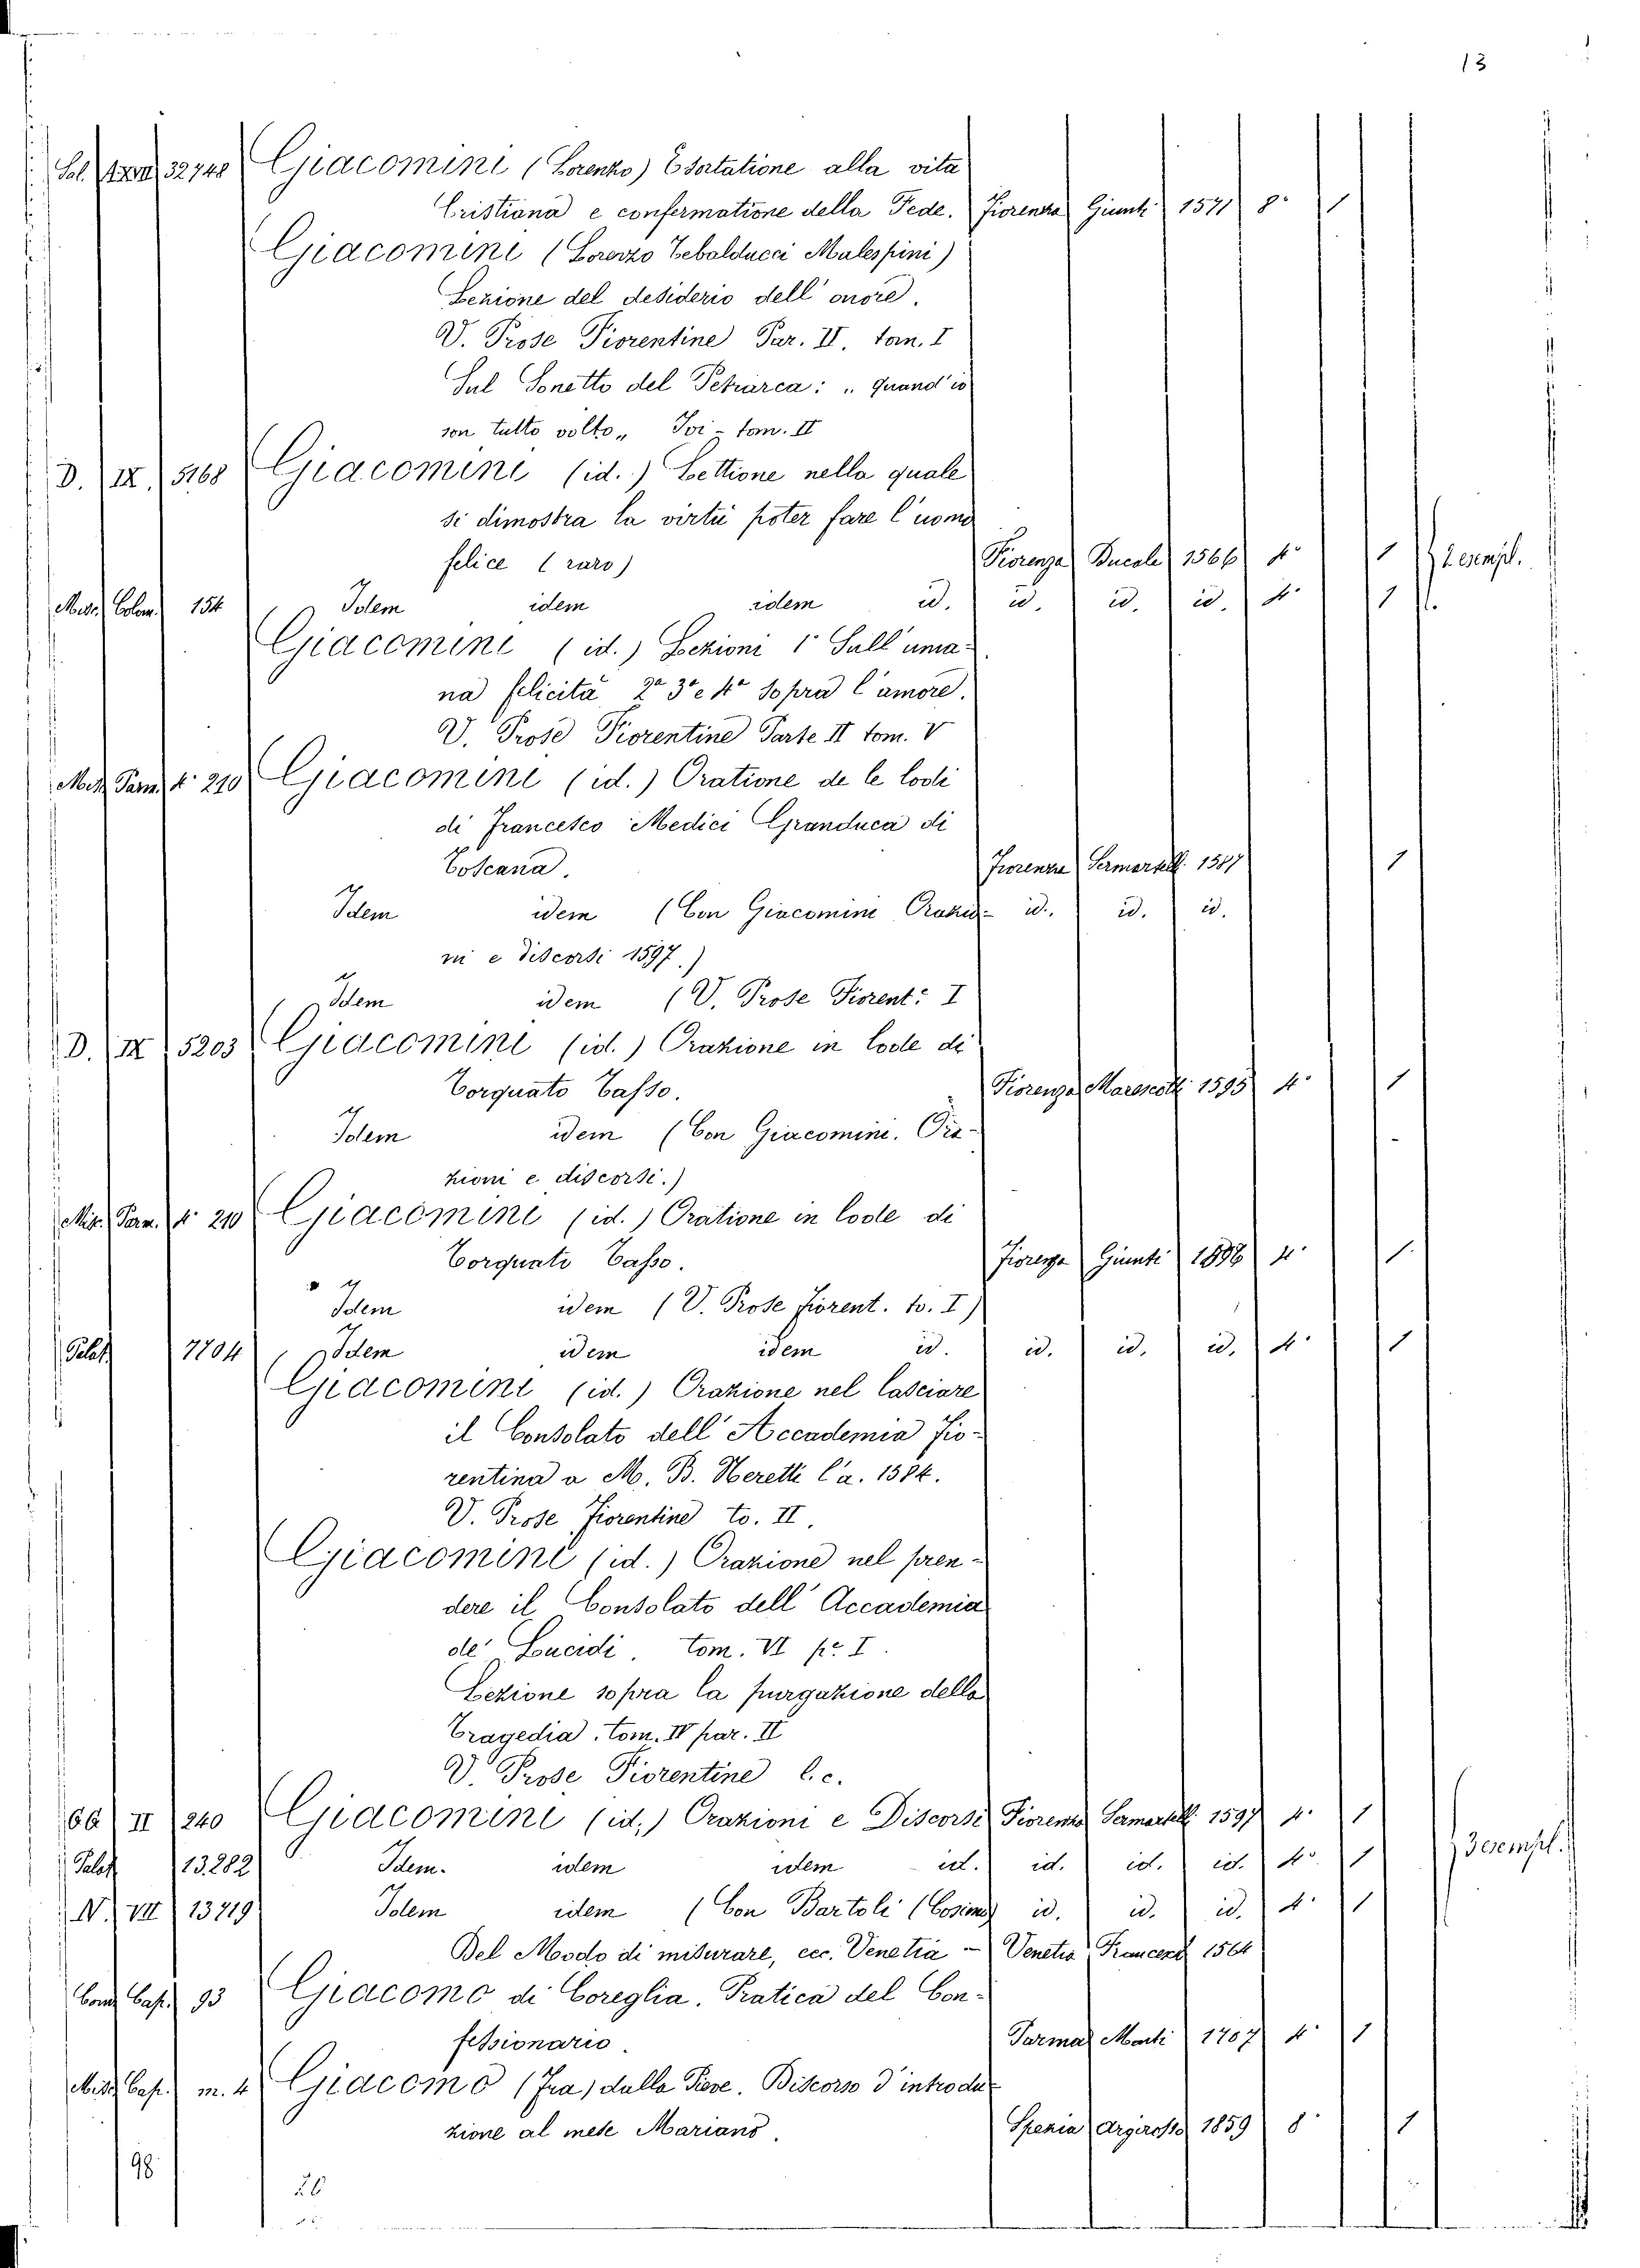 13
Sal. XXVII 32748 Giacomini (Lorenzo) Esortatione alla vita
Cristiana e confermatione della Fede. Fiorenza Giunti 1571 8° 1
Giacomini (Lorenzo Tebalducci Malespini)
Lezione del desiderio dell'onore.
V. Prose Fiorentine Par. II. tom. I
Sul Sonetto del Petrarca: „ quand'io
son tutto volto„ Ivi - tom. II
D. IX. 5168 Giacomini (id.) Lettione nella quale
si dimostra la virtù poter fare l'uomo
felice (raro) Fiorenza 1566 4° 1 2 esempl.
Misc. Colom. 154 Idem idem idem id. id. id. id. 4° 1
Giacomini (id.) Lezioni 1ª Sull'uma-
na felicità 2ª 3ª e 4ª Sopra l'amore.
V. Prose Fiorentine Parte II tom. V
Misc. Parm. 4° 210 Giacomini (id.) Oratione de le lodi
di Francesco Medici Granduca di
Toscana. Fiorenza Sermartelli 1587 1
Idem idem (Con Giacomini Orazio- id. id. id.
ni e Discorsi 1597.)
Idem idem (V. Prose Fiorent: I
D. IX 5203 Giacomini (id.) Orazione in lode di
Torquato Tasso. Fiorenza Marescotti 1595 4° 1
Idem idem (Con Giacomini. Ora-
zioni e discorsi.)
Misc. Parm. 4° 210 Giacomini (id.) Oratione in lode di
Torquato Tasso. Fiorenza Giunti 4° 1
Idem idem (V. Prose Fiorent. to. I)
Palat. 7704 Idem idem idem id. id. id. id. 4° 1
Giacomini (id.) Orazione nel lasciare
il Consolato dell'Accademia Fio-
rentina a M. B. Neretti l'a. 1584.
V. Prose Fiorentine to. II.
Giacomini (id.) Orazione nel pren-
dere il Consolato dell'Accademia
de' Lucidi. tom. VI p.e I.
Lezione sopra la purgazione della
Tragedia. tom. IV par. II
V. Prose Fiorentine l. c.
66 II 240 Giacomini (id.) Orazioni e Discorsi Fiorenza Sermartelli 1597 4° 1
Palat 13.282 Idem. idem idem id. id. id. id. 4° 1 3 esempl.
N. VII 13719 Idem idem (Con Bartoli (Cosimo) id. id. id. 4° 1
Del Modo di misurare, ecc. Venetia - Venetia Francesch 1564
Com. Cap. 93 Giacomo di Coreglia. Pratica del Con-
fessionario. Parma Monti 1707 4° 1
Misc. Cap. m. 4 Giacomo (Fra) dalla Pieve. Discorso d'introdu-
zione al mese Mariano. Spezia Argiroffo 1859 8° 1
98
26